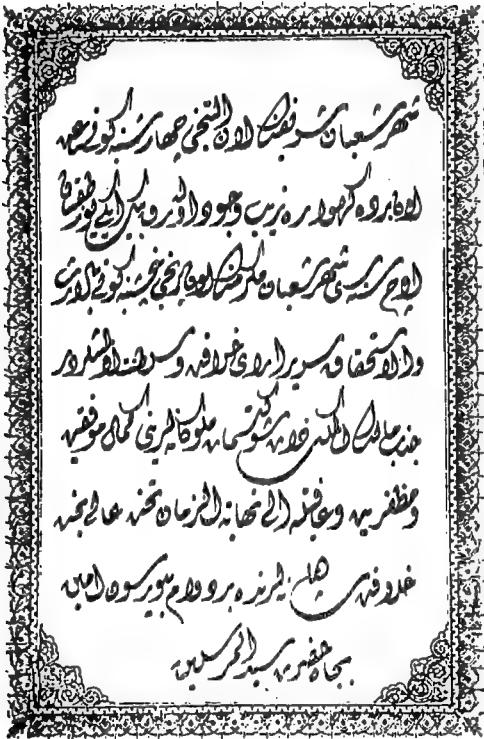 شهر شعبان شریفنك اون التنجی چهارشنبه كونی
اون برده كهواره زیب وجود اولیوب بیك ایكیوز طقسان
اوچ سنه سی شهر شعبان مكرمنك اون برنجی پنجشنبه كونی بالارث
والاستحقاق سریر ارای خلافت وسلطنت اولمشلردر
جناب مالك الملك ذات شوكتسمات ملوكانه لرینی كمال موفقیت
ومظفریت وعافیتله الی نهایة الزمان تخت عالی بخت
خلافت پناهیلرنده بردوام بیورسون امین
بجاه حضرت سید المرسلین